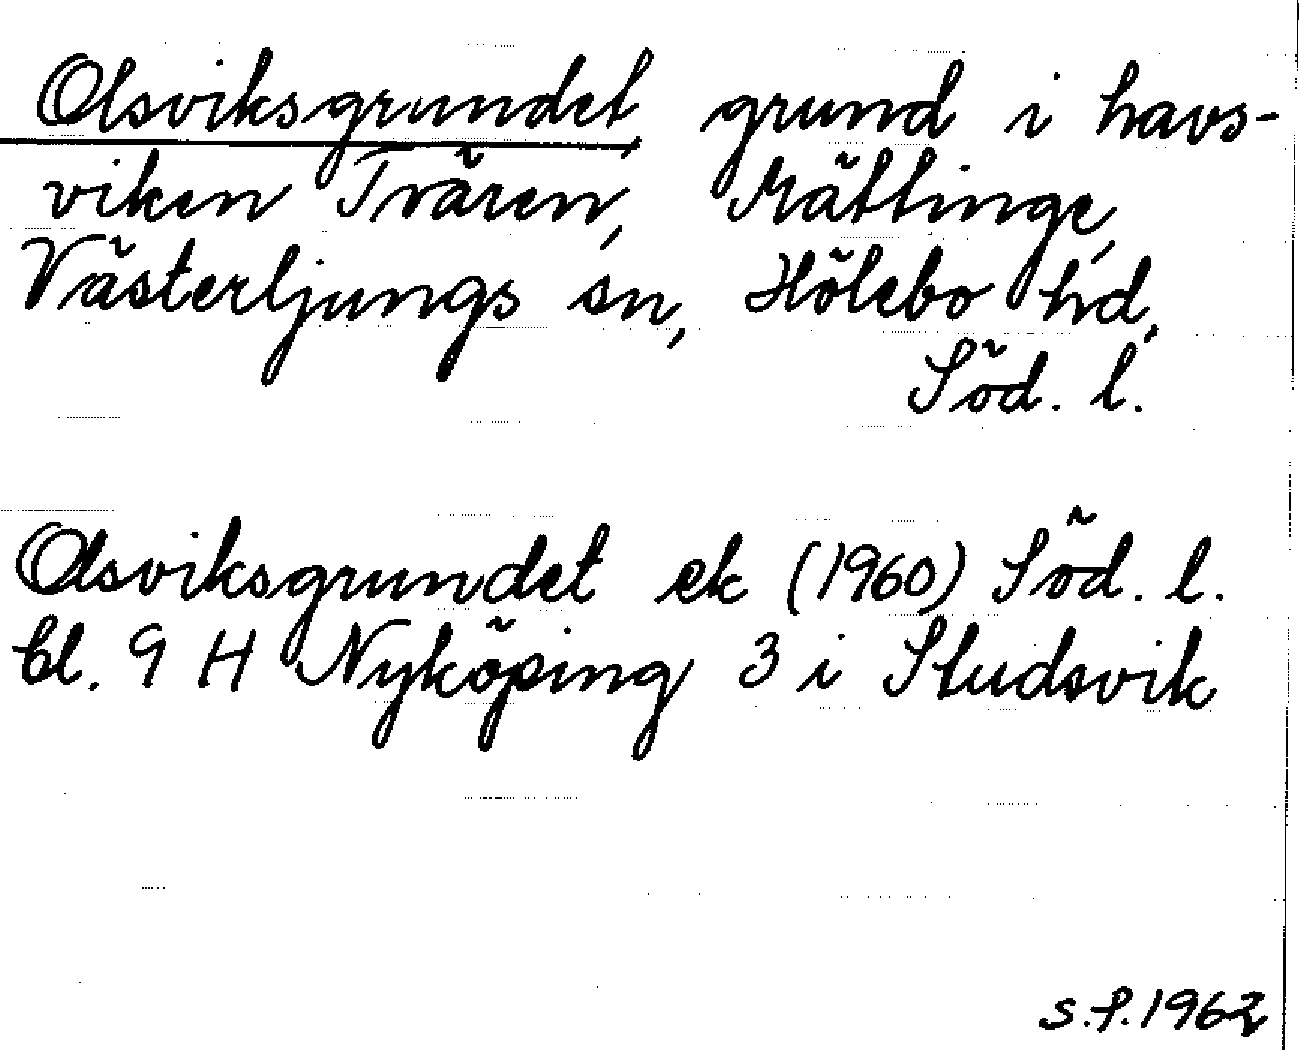 Olsviksgrundet, grund i havs-
viken Tvären, Mättinge,
Västerljungs sn, Hölebo hd,
Söd. l.
Olsviksgrundet ek (1960) Söd. l.
bl. 9 H Nyköping 3 i Studsvik
S.f. 1962